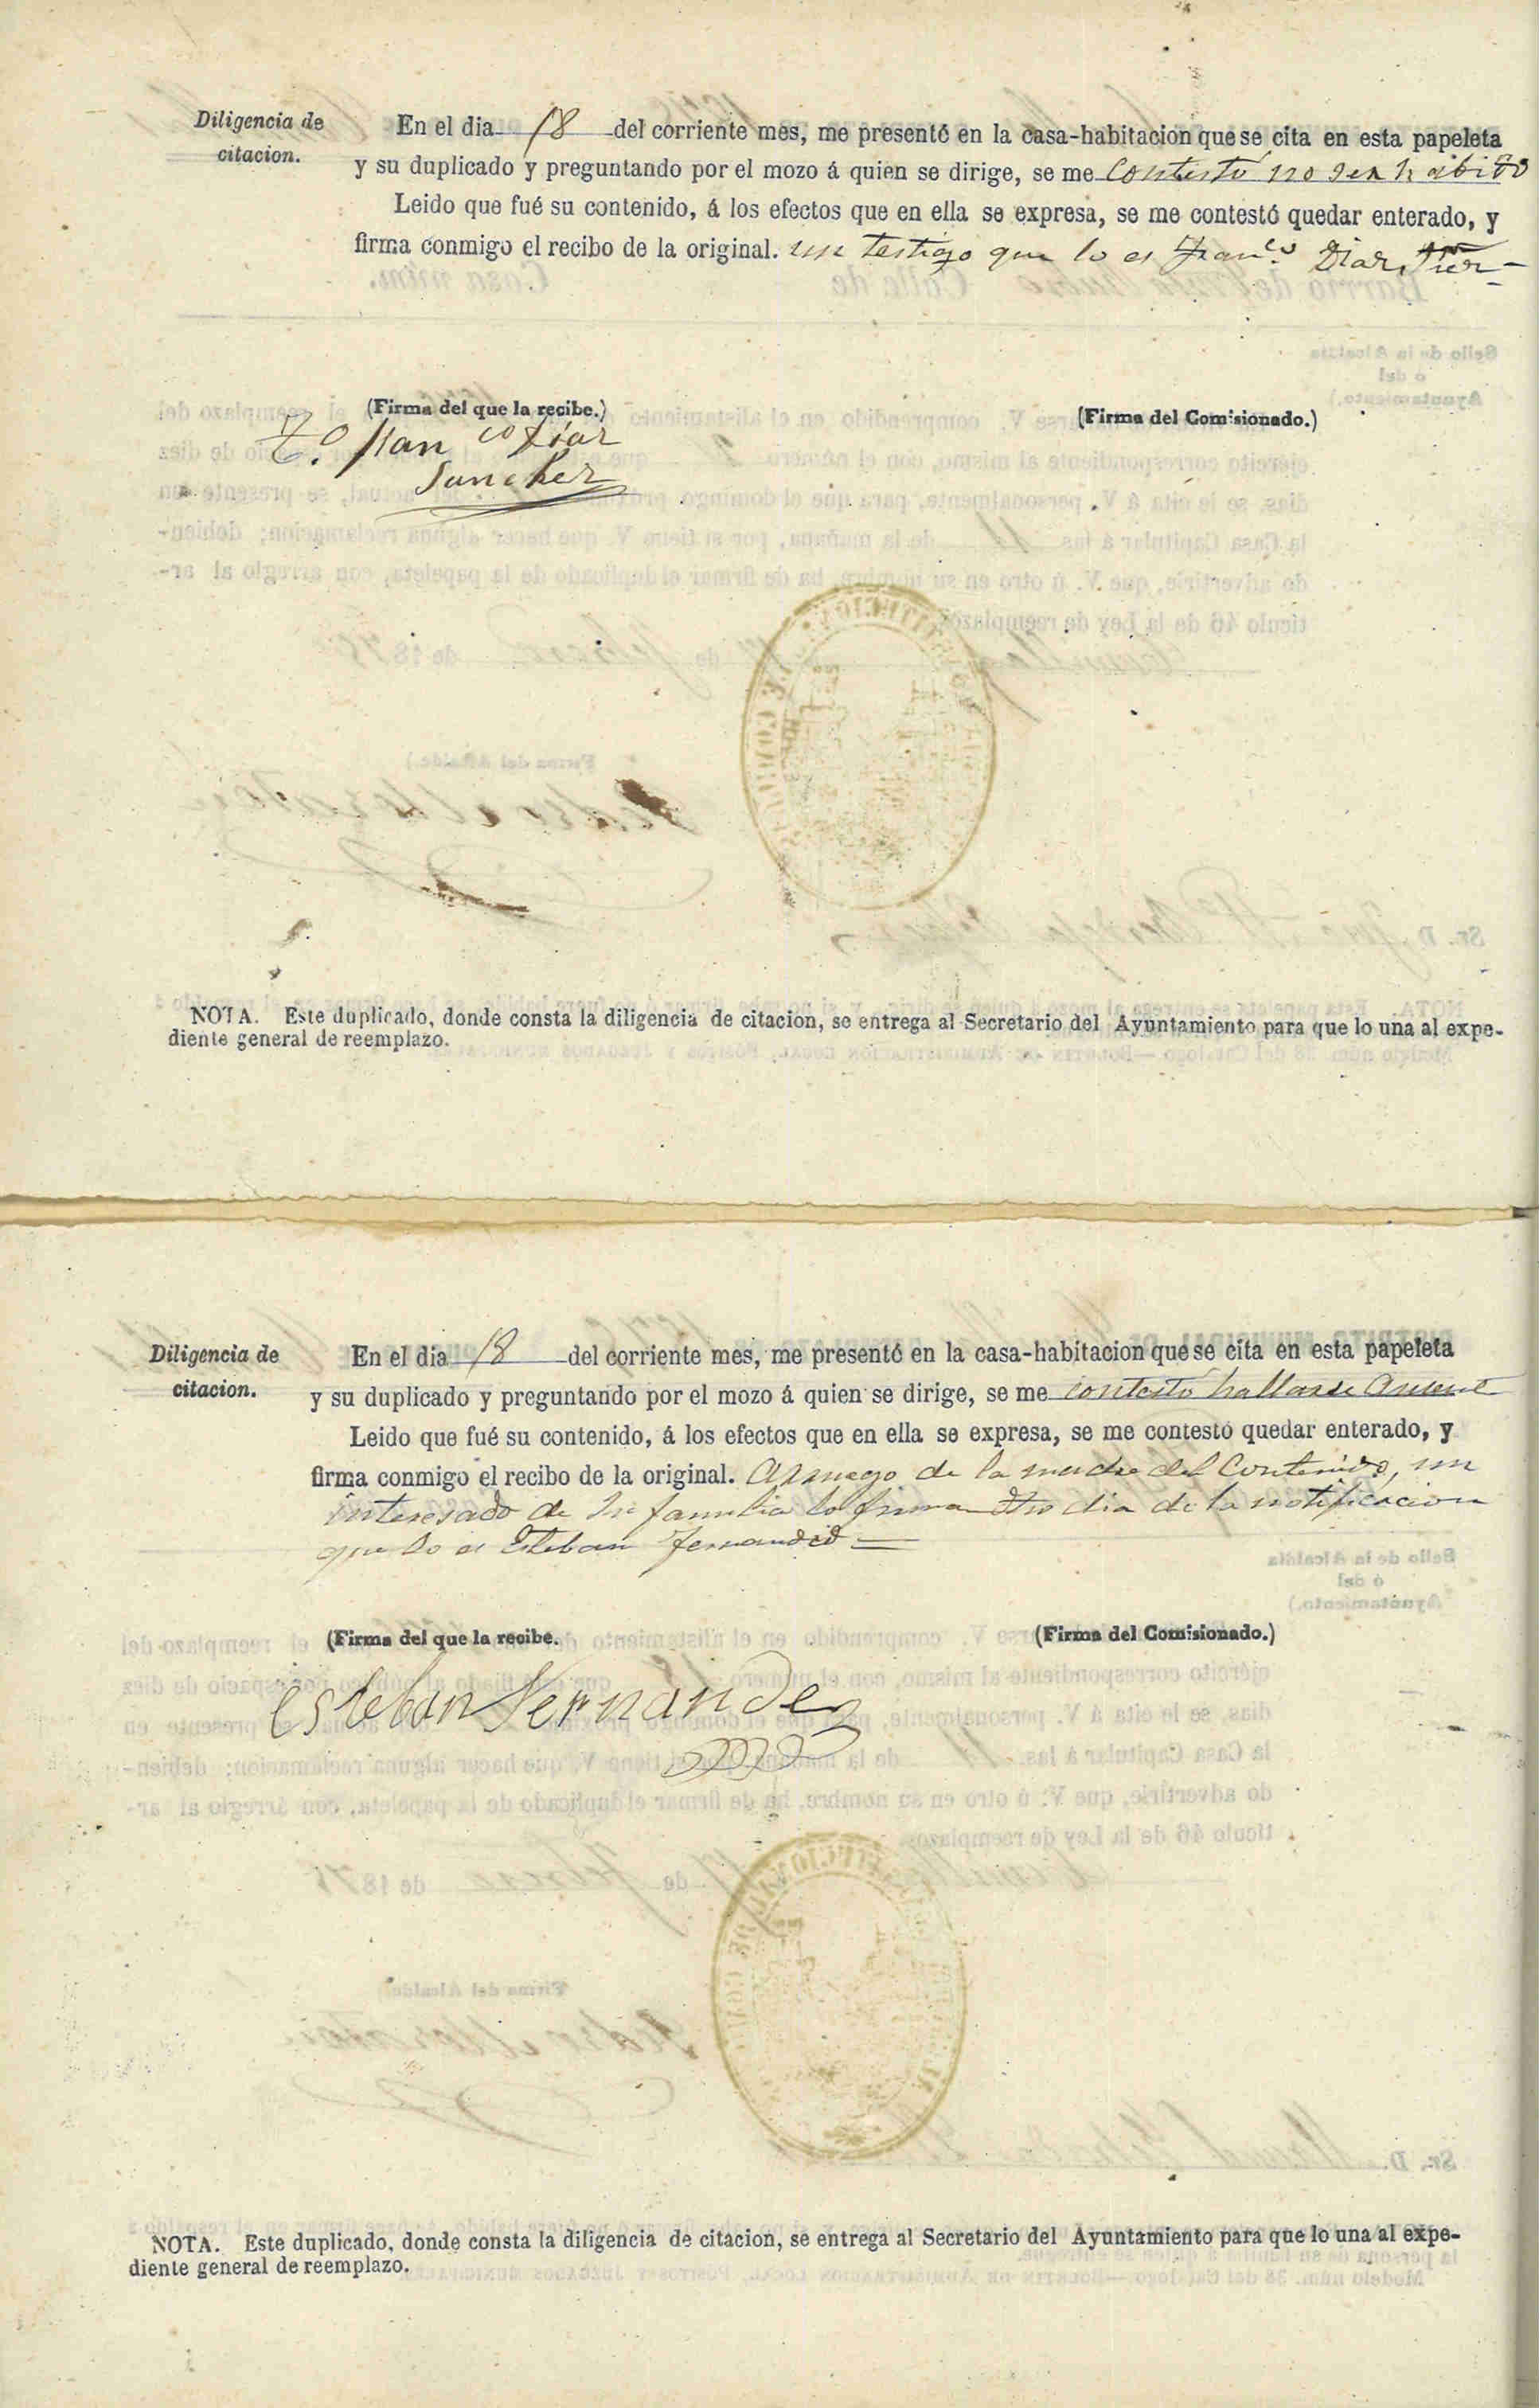 Diligencia de
citacion.
En el dia 18 del corriente mes, me presenté en la casa-habitacion que se cita en esta papeleta
y su duplicado y preguntando por el mozo á quien se dirige, se me contestó no ser habido
Leido que fué su contenido, á los efectos que en ella se expresa, se me contestó quedar enterado, y
firma conmigo el recibo de la original. un testigo que lo es Fran.co Diaz
(Firma del que la recibe.)
(Firma del Comisionado.)
T.o Fran co Diaz
Sanchez
NOTA. Este duplicado, donde consta la diligencia de citacion, se entrega al Secretario del Ayuntamiento para que lo una al expe-
diente general de reemplazo.
Diligencia de
citacion.
En el dia 18 del corriente mes, me presenté en la casa-habitacion que se cita en esta papeleta
y su duplicado y preguntando por el mozo á quien se dirige, se me contestó hallarse Ausente
Leido que fué su contenido, á los efectos que en ella se expresa, se me contestó quedar enterado, y
firma conmigo el recibo de la original. Arruego de la madre del Contenido, un
interesado de su familia lo firma dho dia de la notificacion
que lo es Esteban Fernandez
(Firma del que la recibe.
(Firma del Comisionado.)
Esteban Fernandez
NOTA. Este duplicado, donde consta la diligencia de citacion, se entrega al Secretario del Ayuntamiento para que lo una al expe-
diente general de reemplazo.